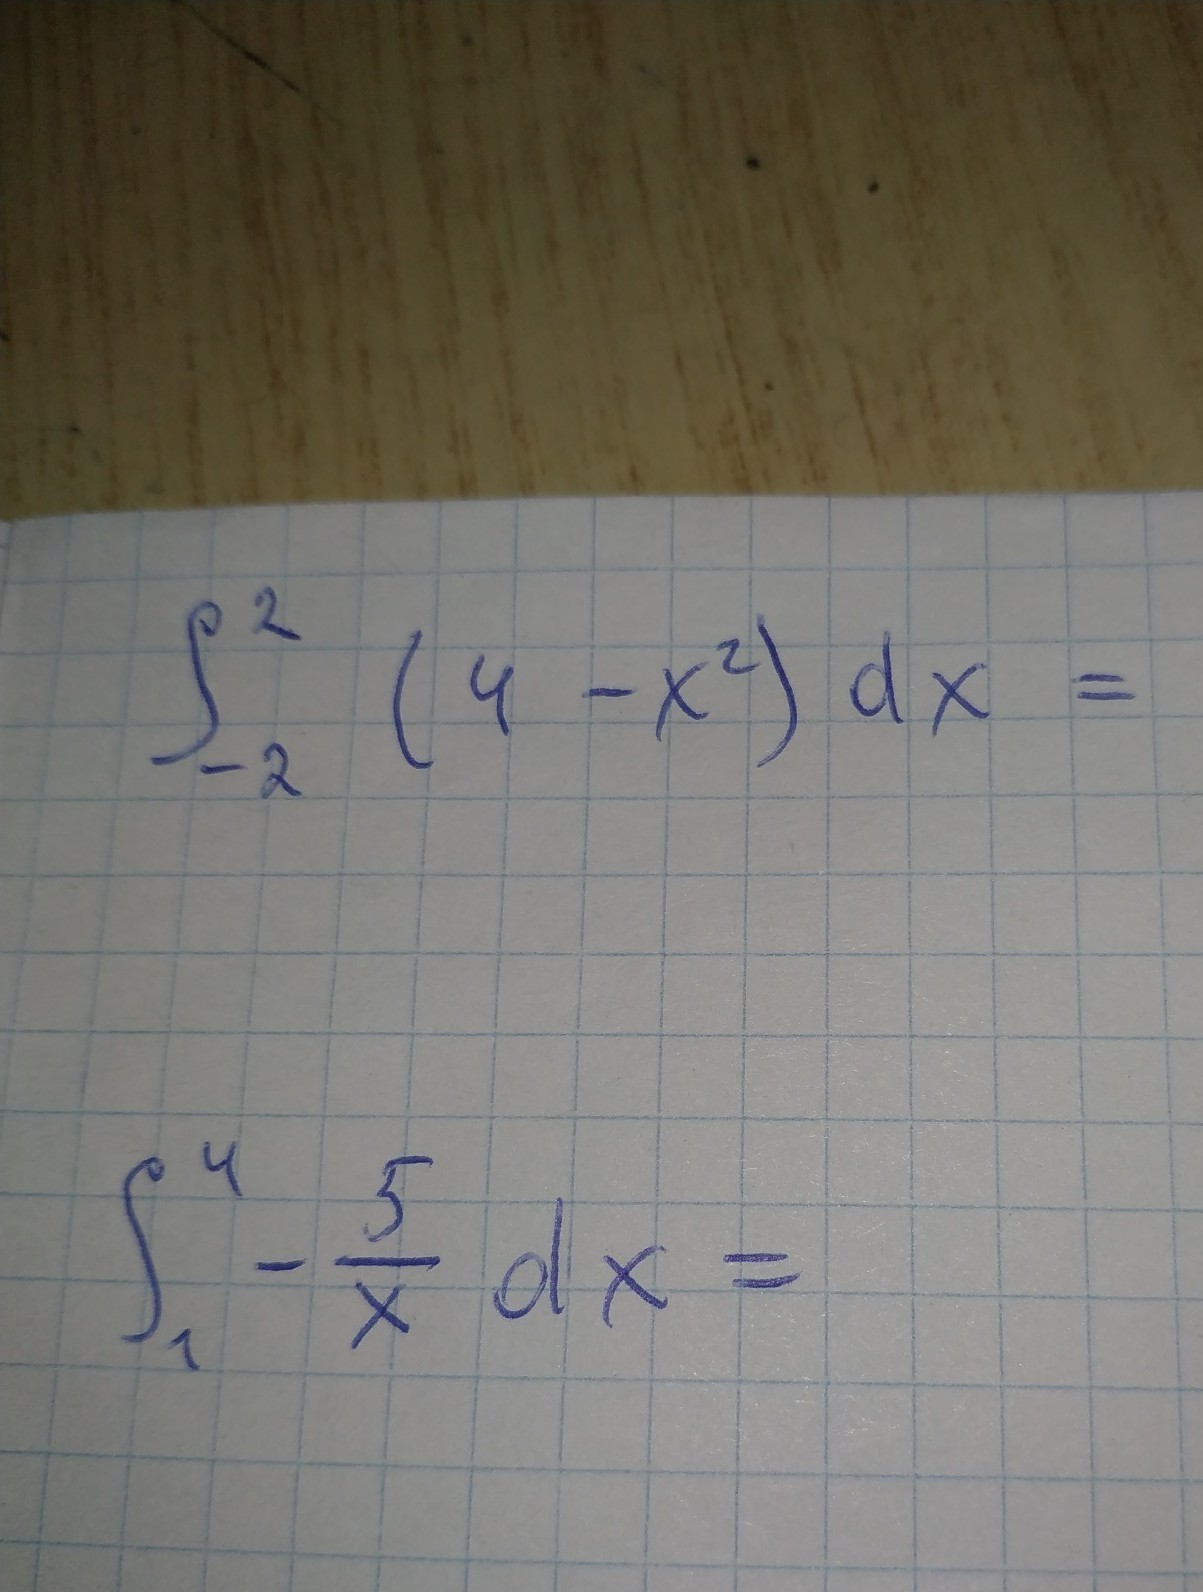 ∫₋₂² (4 - x²) dx =
∫₁⁴ - 5/x dx =